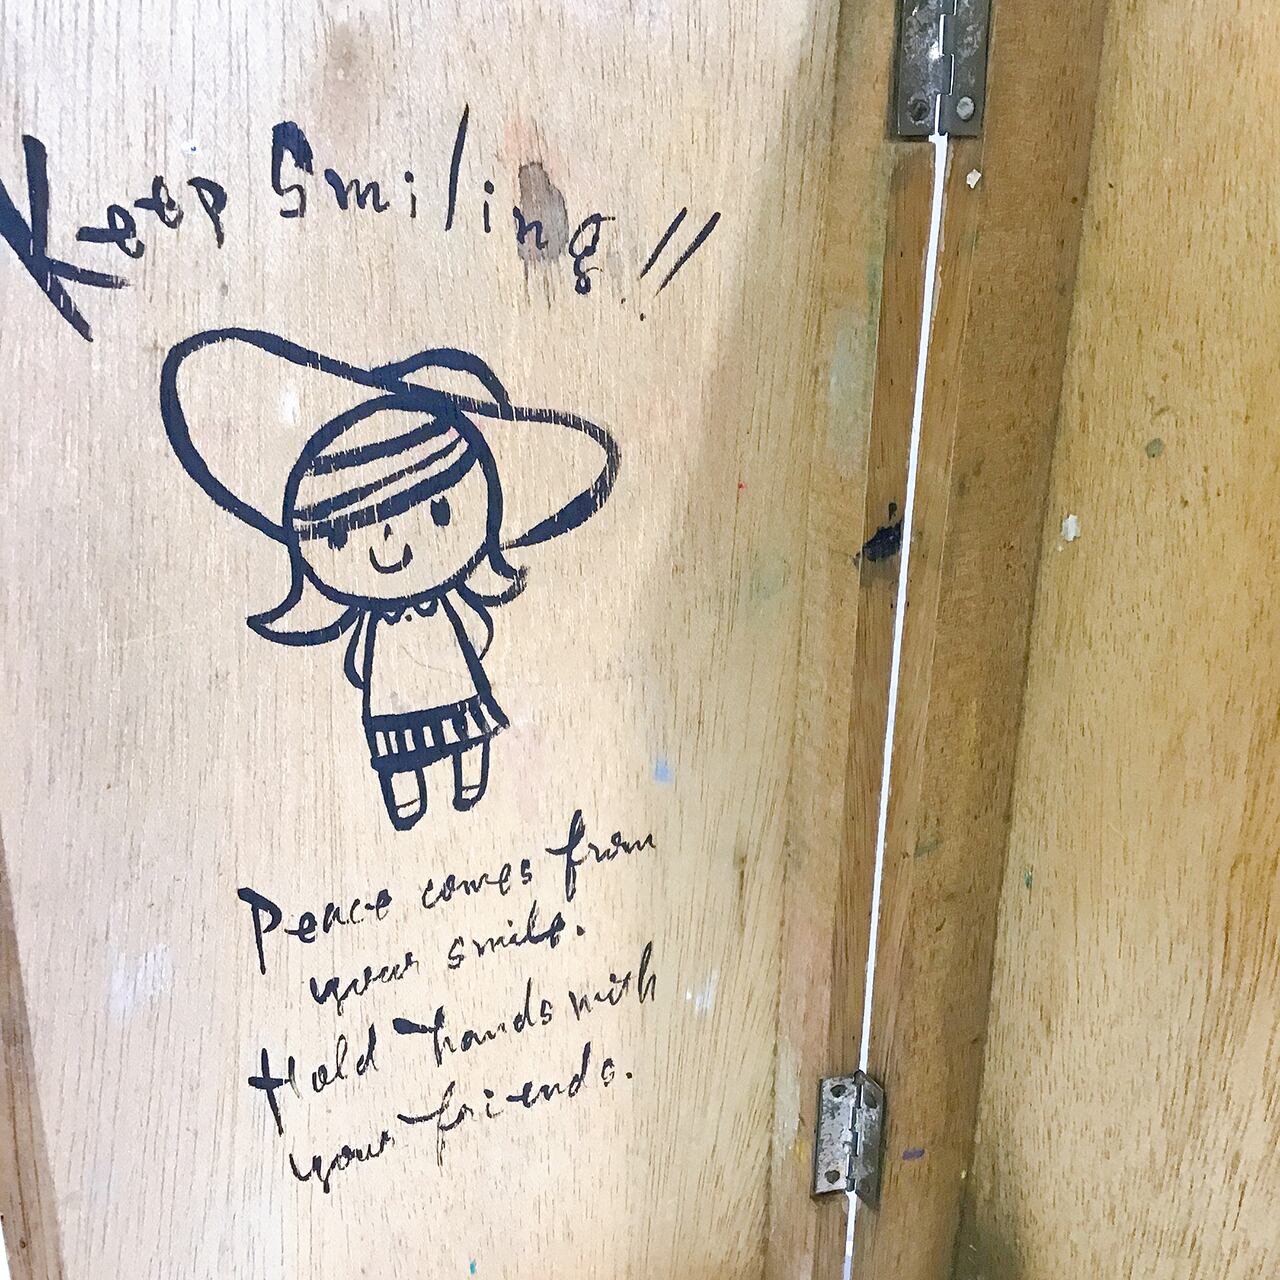 Keep Smiling!!
Peace comes from
your smile.
Hold hands with
your friends.